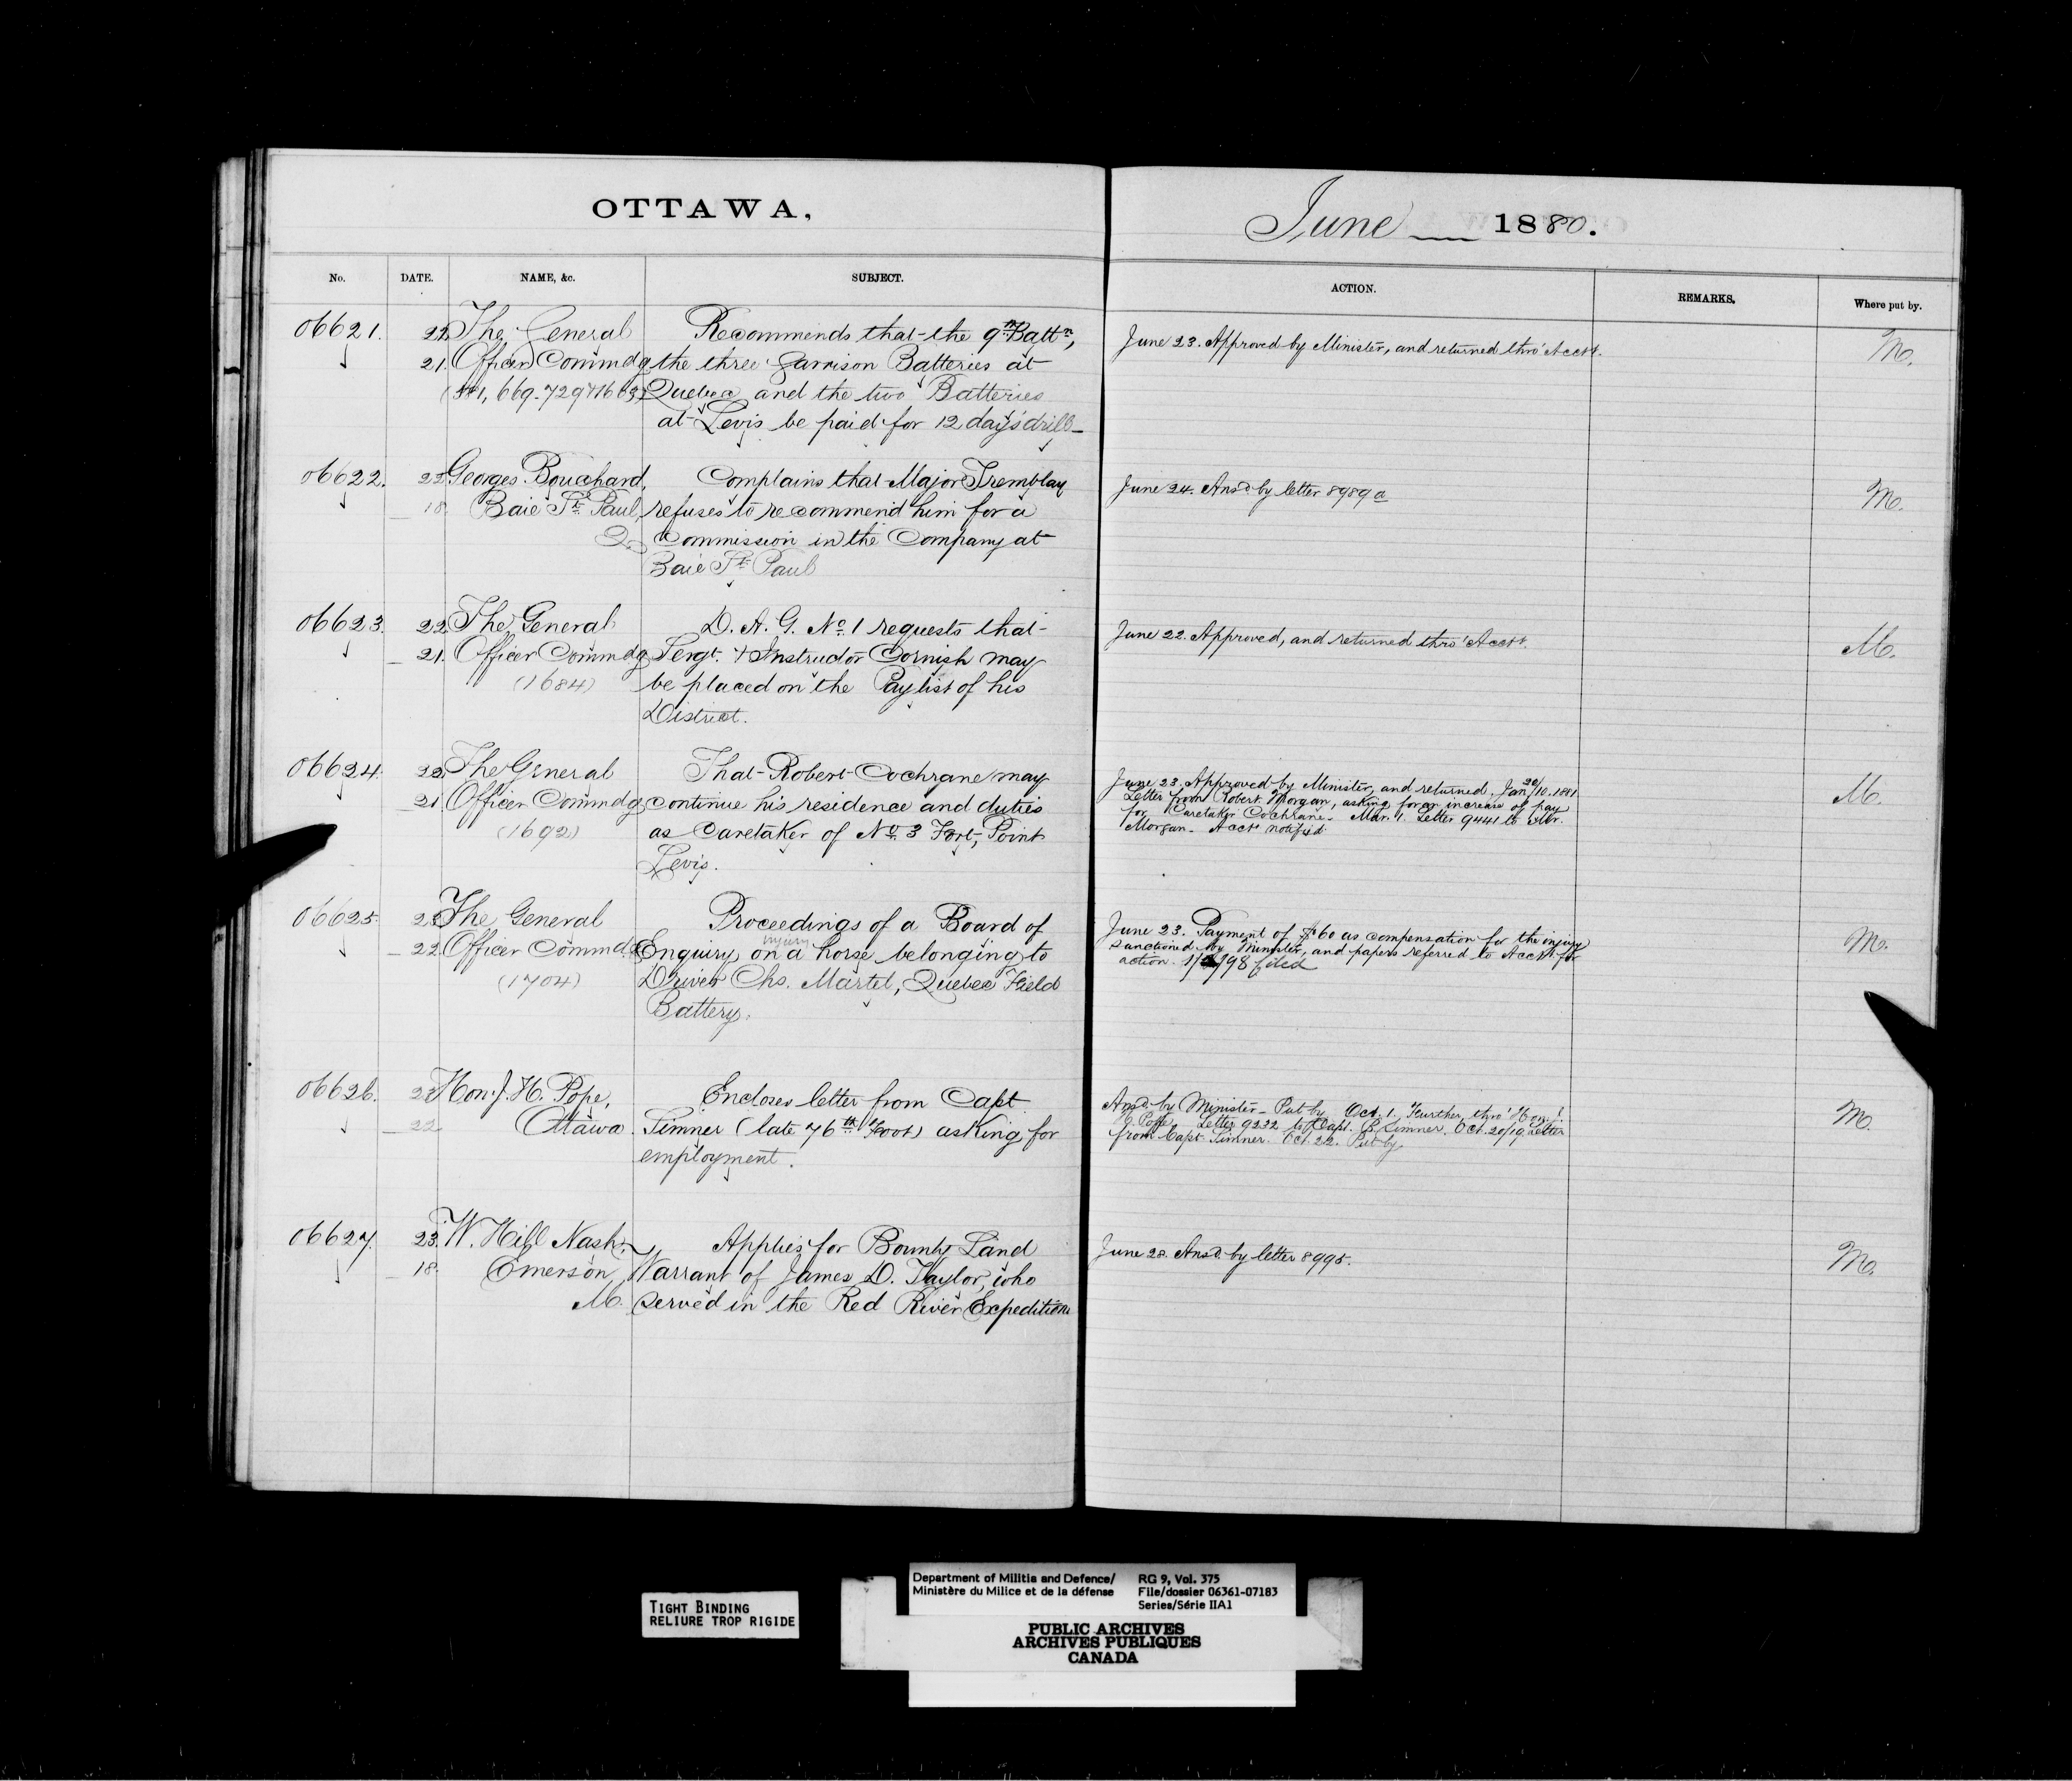 OTTAWA,
June 1880.
No. DATE. NAME, &c. SUBJECT. ACTION. REMARKS. Where put by.
06621. 22 The General Recommends that the 9th Battn, June 23. Approved by Minister, and returned thro' Acctt. M.
21. Officer Commdg the three Garrison Batteries at
Quebec and the two Batteries
at Levis be paid for 12 days' drill
06622. 22 Georges Bouchard, Complains that Major Tremblay June 24. Ansd. by letter 8989 a M.
18. Baie St. Paul, refuses to recommend him for a
Q. Commission in the Company at
Baie St. Paul
06623. 22. The General D. A. G. No. 1 requests that June 22. Approved, and returned thro' Acctt. M.
21. Officer Commdg Sergt. & Instructor Cornish may
(1684) be placed on the Paylist of his
District.
06624. 22. The General That Robert Cochrane may June 23. Approved by Minister, and returned. Jan. 20/10. 1881 M.
21. Officer Commdg continue his residence and duties Letter from Robert Morgan, asking for an increase of pay
(1692) as Caretaker of No. 3 Fort, Point for Caretaker Cochrane. Mar. 1. Letter 9441 to Mr.
Levis. Morgan. Acctt notified.
06625. 23 The General Proceedings of a Board of June 23. Payment of $60 as compensation for the injury M.
22. Officer Commdg Enquiry on injury a horse belonging to sanctioned by Minister, and papers referred to Acctt for
(1704) Driver Chs. Martel, Quebec Field action. filed
Battery.
06626. 23 Hon. J. H. Pope, Encloses letter from Capt. Ansd. by Minister. Put by. Oct. 1. Further, thro' Hon. M.
22 Ottawa. Simner (late 76th Foot) asking for Pope. Letter 9232 to Capt. B. Simner. Oct. 20/19. Letter
employment. from Capt. Simner. Oct. 22. Put by
06627. 23. W. Hill Nash, Applies for Bounty Land June 28. Ansd. by letter 8995. M.
18. Emerson, Warrant of James D. Taylor, who
M. served in the Red River Expedition
TIGHT BINDING
RELIURE TROP RIGIDE
Department of Militia and Defence/ RG 9, Vol. 375
Ministère du Milice et de la défense File/dossier 06361-07183
Series/Série IIA1
PUBLIC ARCHIVES
ARCHIVES PUBLIQUES
CANADA